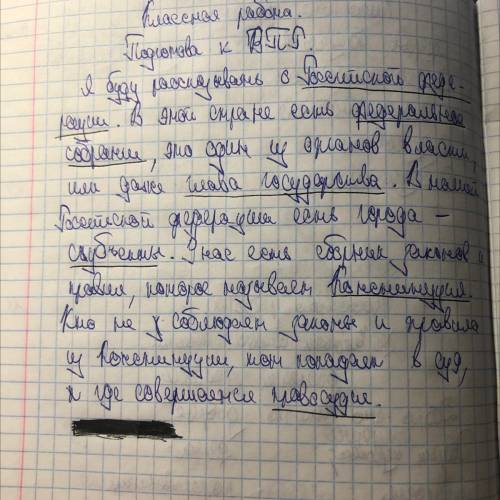 Классная работа.
Подготовка к ВПР.
Я буду рассказывать о Российской феде-
рации. В этой стране есть федеральное
собрание, это один из органов власти,
или даже глава государства. В нашей
Российской федерации есть города –
субъекты. У нас есть сборник законов и
правил, которое называет Конституция.
Кто не соблюдает законы и правила
из Конституции, тот попадает в суд,
где совершается правосудие.